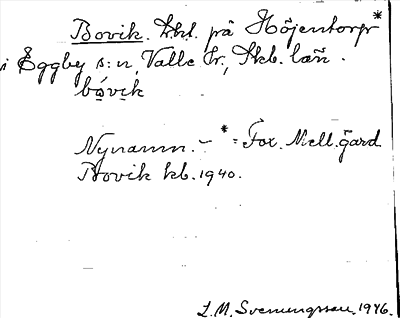 Bovik. lht. på Höjentorp*
i Eggby s:n, Valle hr, Skb. län.
bóvik
Nynamn. – * = Fox. Mell.gård
Bovik kb. 1940.
L. M. Svenungsson. 1946.